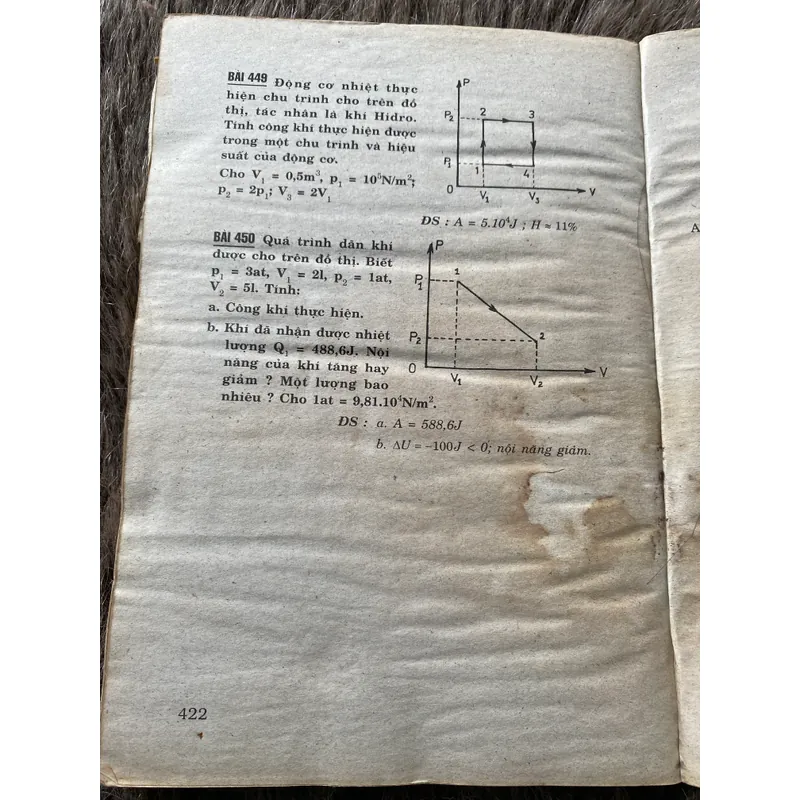 BÀI 449 Động cơ nhiệt thực
hiện chu trình cho trên đồ
thị, tác nhân là khí Hidro.
Tính công khí thực hiện được
trong một chu trình và hiệu
suất của động cơ.
Cho V₁ = 0,5m³, p₁ = 10⁵N/m²;
p₂ = 2p₁; V₃ = 2V₁
P
P₂
2
3
P₁
1
4
O
V₁
V₃
V
ĐS : A = 5.10⁴J ; H ≈ 11%
BÀI 450 Quá trình dãn khí
được cho trên đồ thị. Biết
p₁ = 3at, V₁ = 2l, p₂ = 1at,
V₂ = 5l. Tính:
a. Công khí thực hiện.
b. Khí đã nhận được nhiệt
lượng Q₁ = 488,6J. Nội
năng của khí tăng hay
giảm ? Một lượng bao
nhiêu ? Cho 1at = 9,81.10⁴N/m².
P
P₁
1
P₂
2
O
V₁
V₂
V
ĐS : a. A = 588,6J
b. ΔU = –100J < 0; nội năng giảm.
422
A